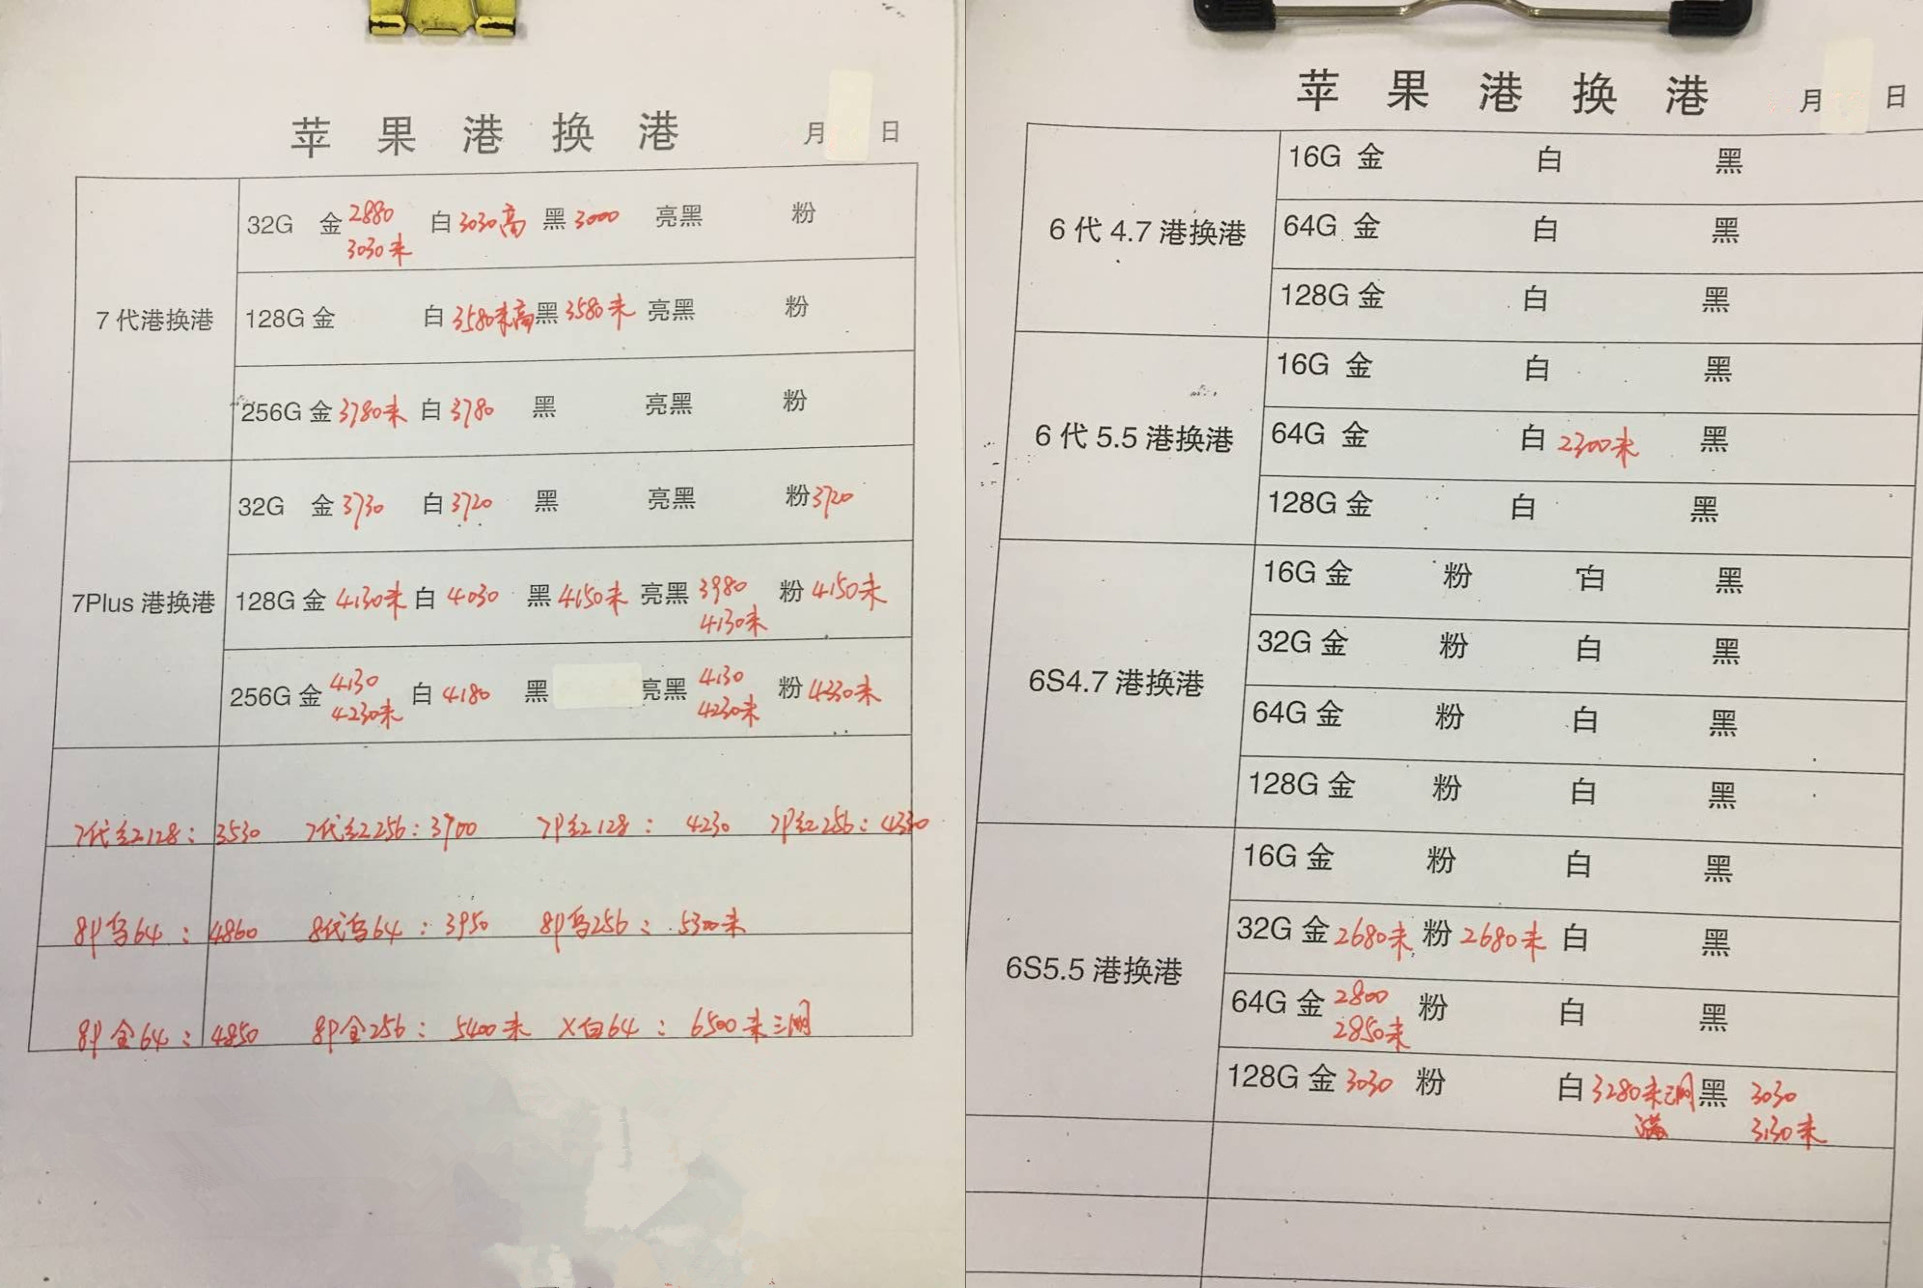 苹果港换港 月 日
7代港换港
32G 金 2880 白 3030高 黑 3000 亮黑 粉
3030未
128G 金 白 3580未高 黑 3580未 亮黑 粉
256G 金 3780未 白 3780 黑 亮黑 粉
7Plus港换港
32G 金 3730 白 3720 黑 亮黑 粉 3720
128G 金 4130未 白 4030 黑 4150未 亮黑 3980 粉 4150未
4130未
256G 金 4130 白 4180 黑 亮黑 4130 粉 4330未
4230未 4230未
7代红128： 3530 7代红256：3700 7P红128： 4230 7P红256：4330
8P 64： 4860 8代 64：3950 8P 256： 5300未
8P金64：4850 8P金256： 5400未 X白64： 6500未三网
苹果港换港 月 日
6代4.7港换港
16G 金 白 黑
64G 金 白 黑
128G 金 白 黑
6代5.5港换港
16G 金 白 黑
64G 金 白 2300未 黑
128G 金 白 黑
6S4.7港换港
16G 金 粉 白 黑
32G 金 粉 白 黑
64G 金 粉 白 黑
128G 金 粉 白 黑
6S5.5港换港
16G 金 粉 白 黑
32G 金 2680未 粉 2680未 白 黑
64G 金 2800 粉 白 黑
2850未
128G 金 3030 粉 白 3280未三网 黑 3030
满 3130未